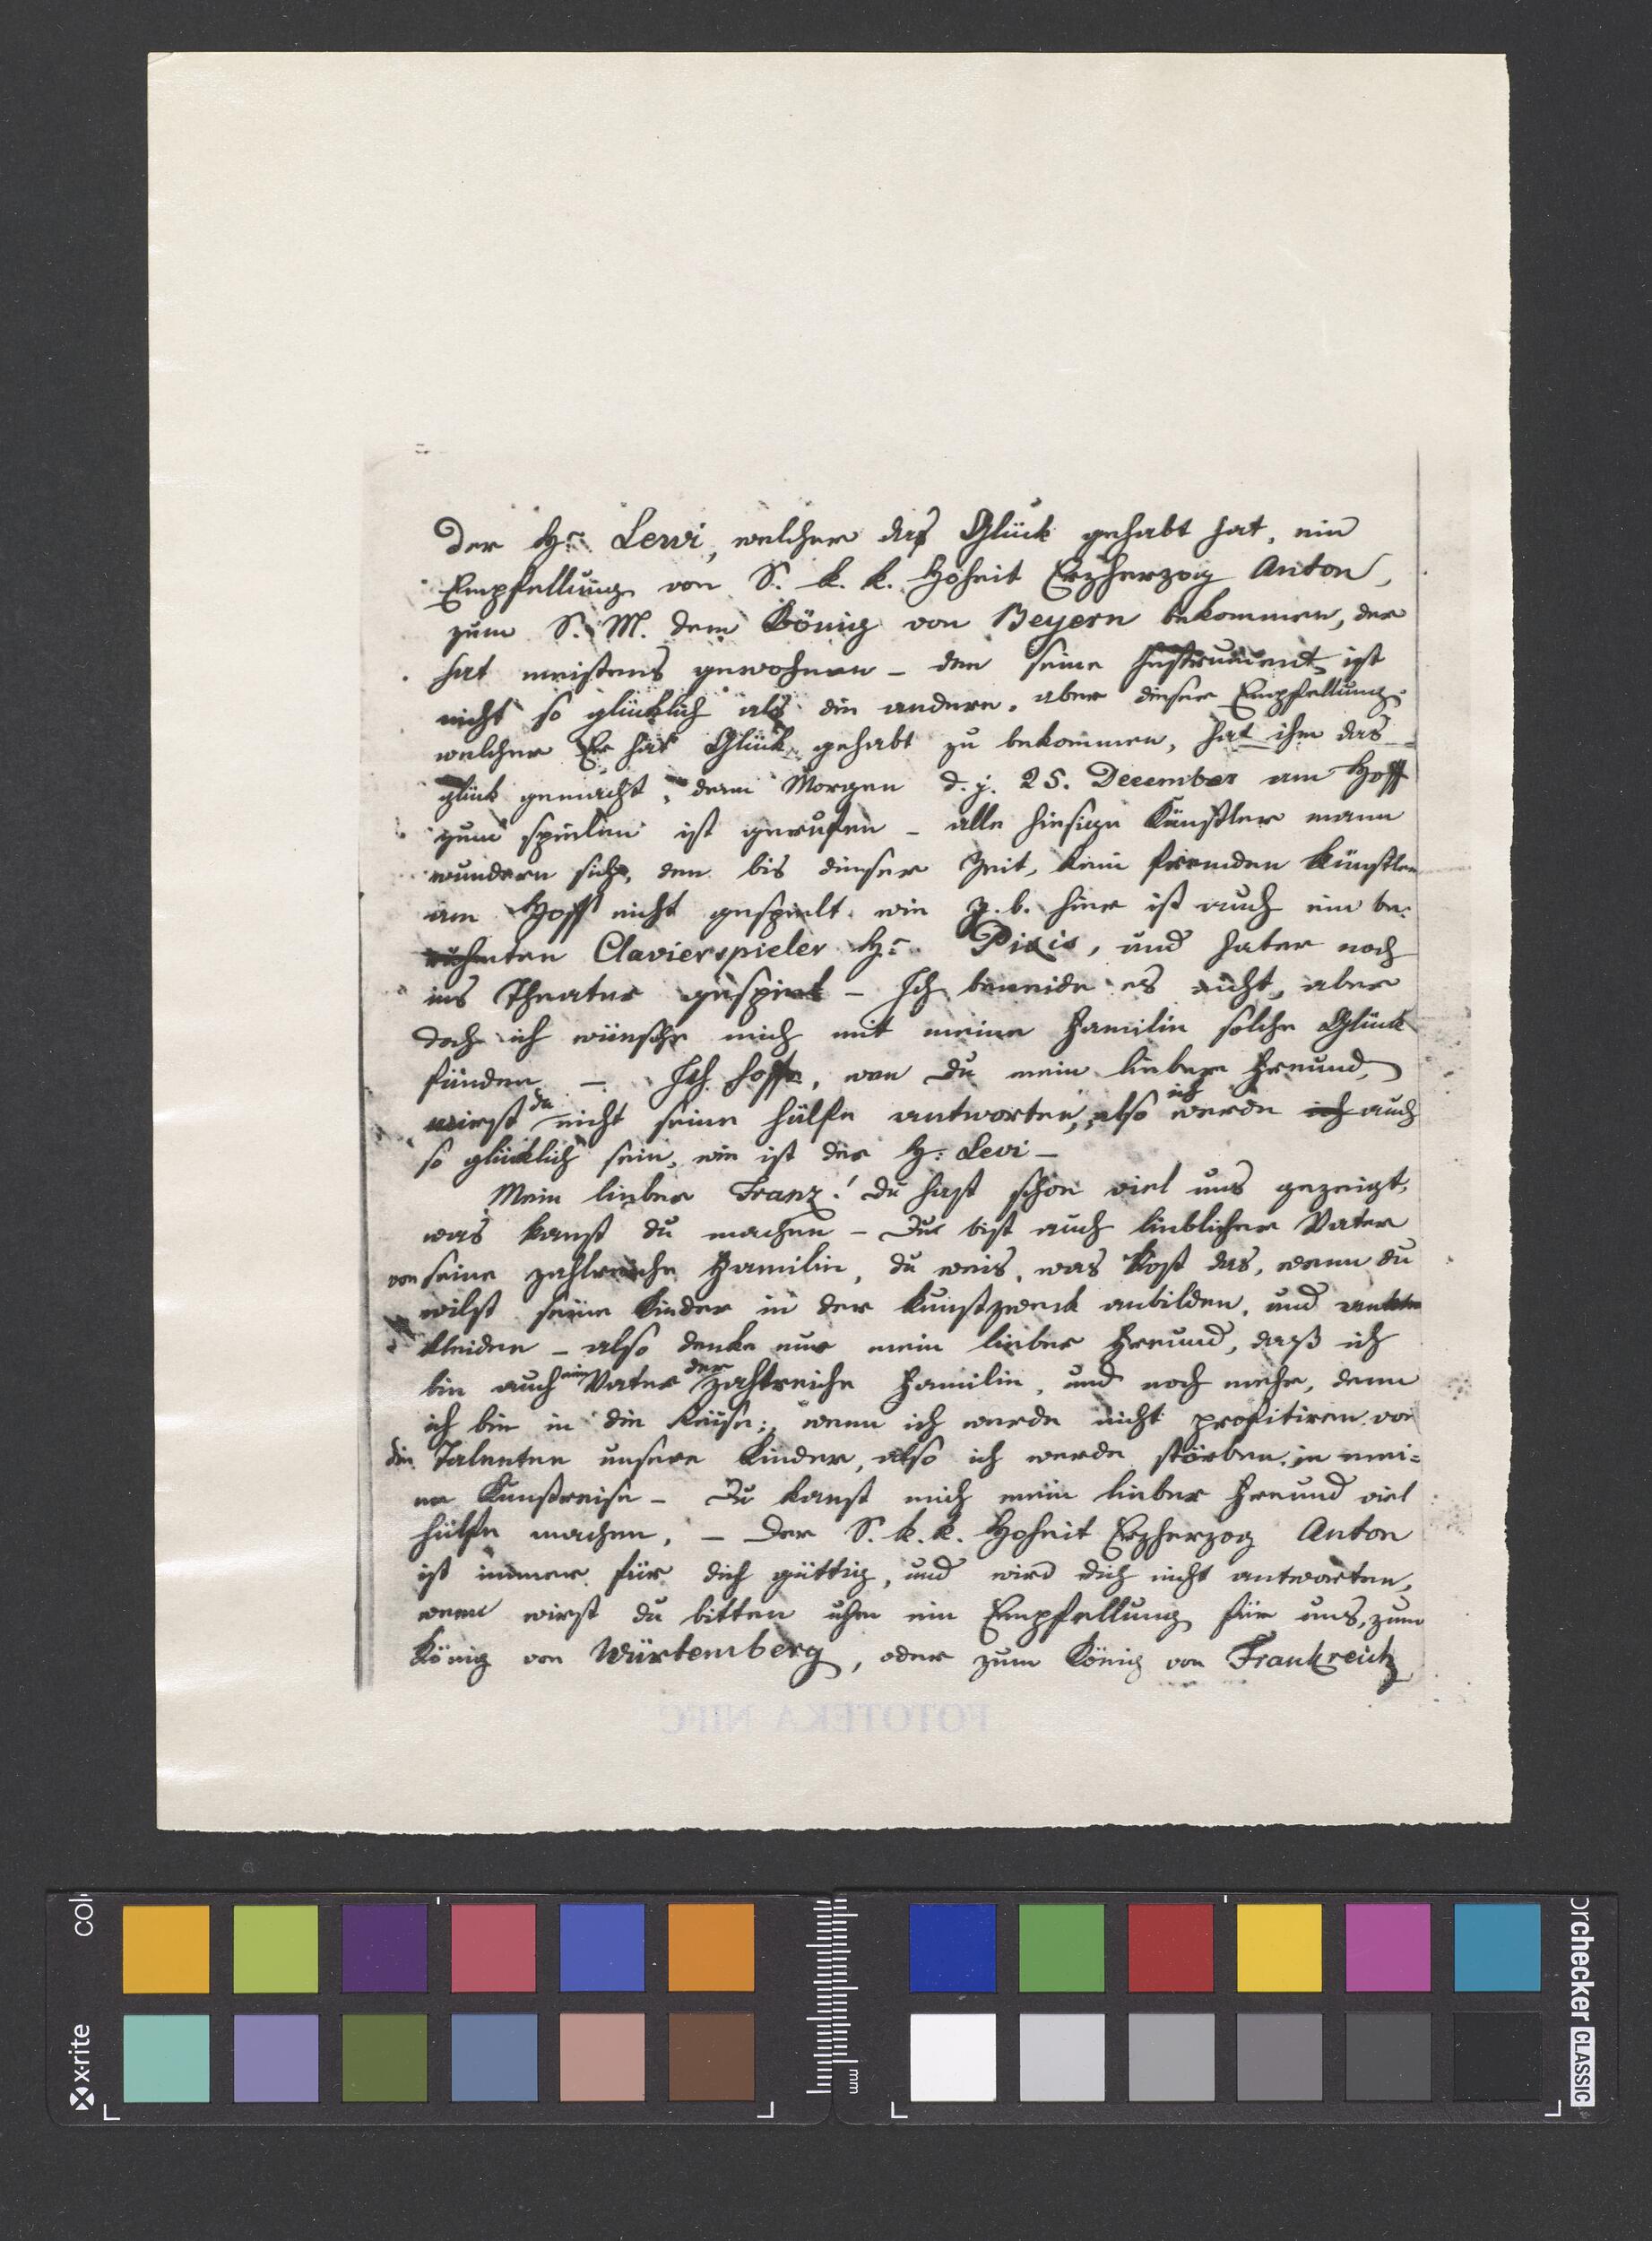 Der Hr. Lewi, welcher das Glück gehabt hat, ein
Empfellung von S. k. k. Hoheit Erzherzog Anton,
zum S. M. dem König von Beyern bekommen, der
hat meistens gewohnen – den seine Instrument ist
nicht so glücklich als die andere, aber dieser Empfellung,
welcher Er hat Glück gehabt zu bekommen, hat ihm das
glück gemacht, denn Morgen d. j. 25. December am Hoff
zum spielen ist gerufen – alle hiesige Künstler
wundern sich, den bis dieser Zeit, kein fremden Künstler
am Hoff nicht gespielt, wie z. b. hier ist auch ein be-
rühmten Clavierspieler Hr. Pixis, und hater noch
ins Theater gespielt – Ich beneide es nicht, aber
doch ich wünsche mich mit meine Familie solche Glück
finden – Ich hoffe, wen Du mein lieber Freund,
wirst du nicht seine hülfe antworten, also ich werde ich auch
so glücklich sein, wie ist der H: Levi –
Mein lieber Franz! du hast schon viel uns gezeigt,
was kanst du machen – Du bist auch lieblicher Vater
von seine zahlreiche Familie, du weis, was kost das, wenn du
wilst seine Kinder in der Kunstzweck anbilden, und
kleiden – also denke nur mein lieber Freund, daß ich
bin auch ein Vater der zahlreiche Familie, und noch mehr, denn
ich bin in die Reise; wenn ich werde nicht profitiren von
die Talenten unsere Kinder, also ich werde störben in mei-
ne Kunstreise – Du kanst mich mein lieber Freund viel
hülfe machen, – Der S. k. k. Hoheit Erzherzog Anton
ist immer für dich güttig, und wird dich nicht antworten,
wenn wirst du bitten uhm ein Empfellung für uns, zum
König von Würtemberg, oder zum König von Frankreich
FOTOTEKA NIFC
x·rite
mm
checker CLASSIC